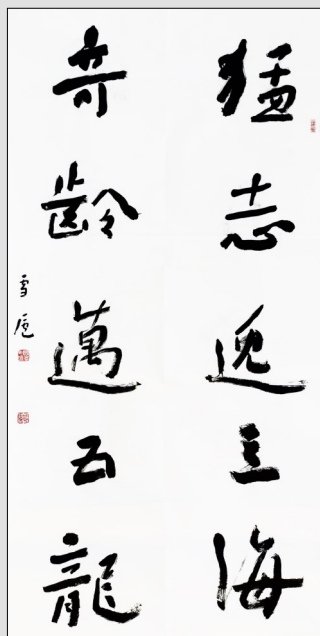 猛志逸亖海
奇齡邁五龍
雪